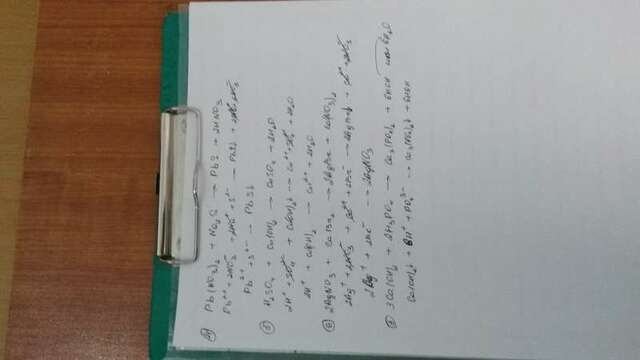 4) Pb(NO3)2 + Na2S → PbS + 2HNO3
Pb2+ + 2NO3- + 2Na+ + S2- → PbS↓ + 2Na+ + 2NO3-
Pb2+ + S2- → PbS↓
5) H2SO4 + Ca(OH)2 → CaSO4 + 2H2O
2H+ + SO42- + Ca(OH)2↓ → Ca2+ + SO42- + 2H2O
2H+ + Ca(OH)2 → Ca2+ + 2H2O
6) 2AgNO3 + CaBr2 → 2AgBr + Ca(NO3)2
2Ag+ + 2NO3- + Ca2+ + 2Br- → 2AgBr↓ + Ca2+ + 2NO3-
→ 2AgNO3
3Ca(OH)2 + 2H3PO4 → Ca3(PO4)2 + 6HOH или 6H2O
Ca(OH)2↓ + 6H+ + PO43- → Ca3(PO4)2↓ + 6HOH